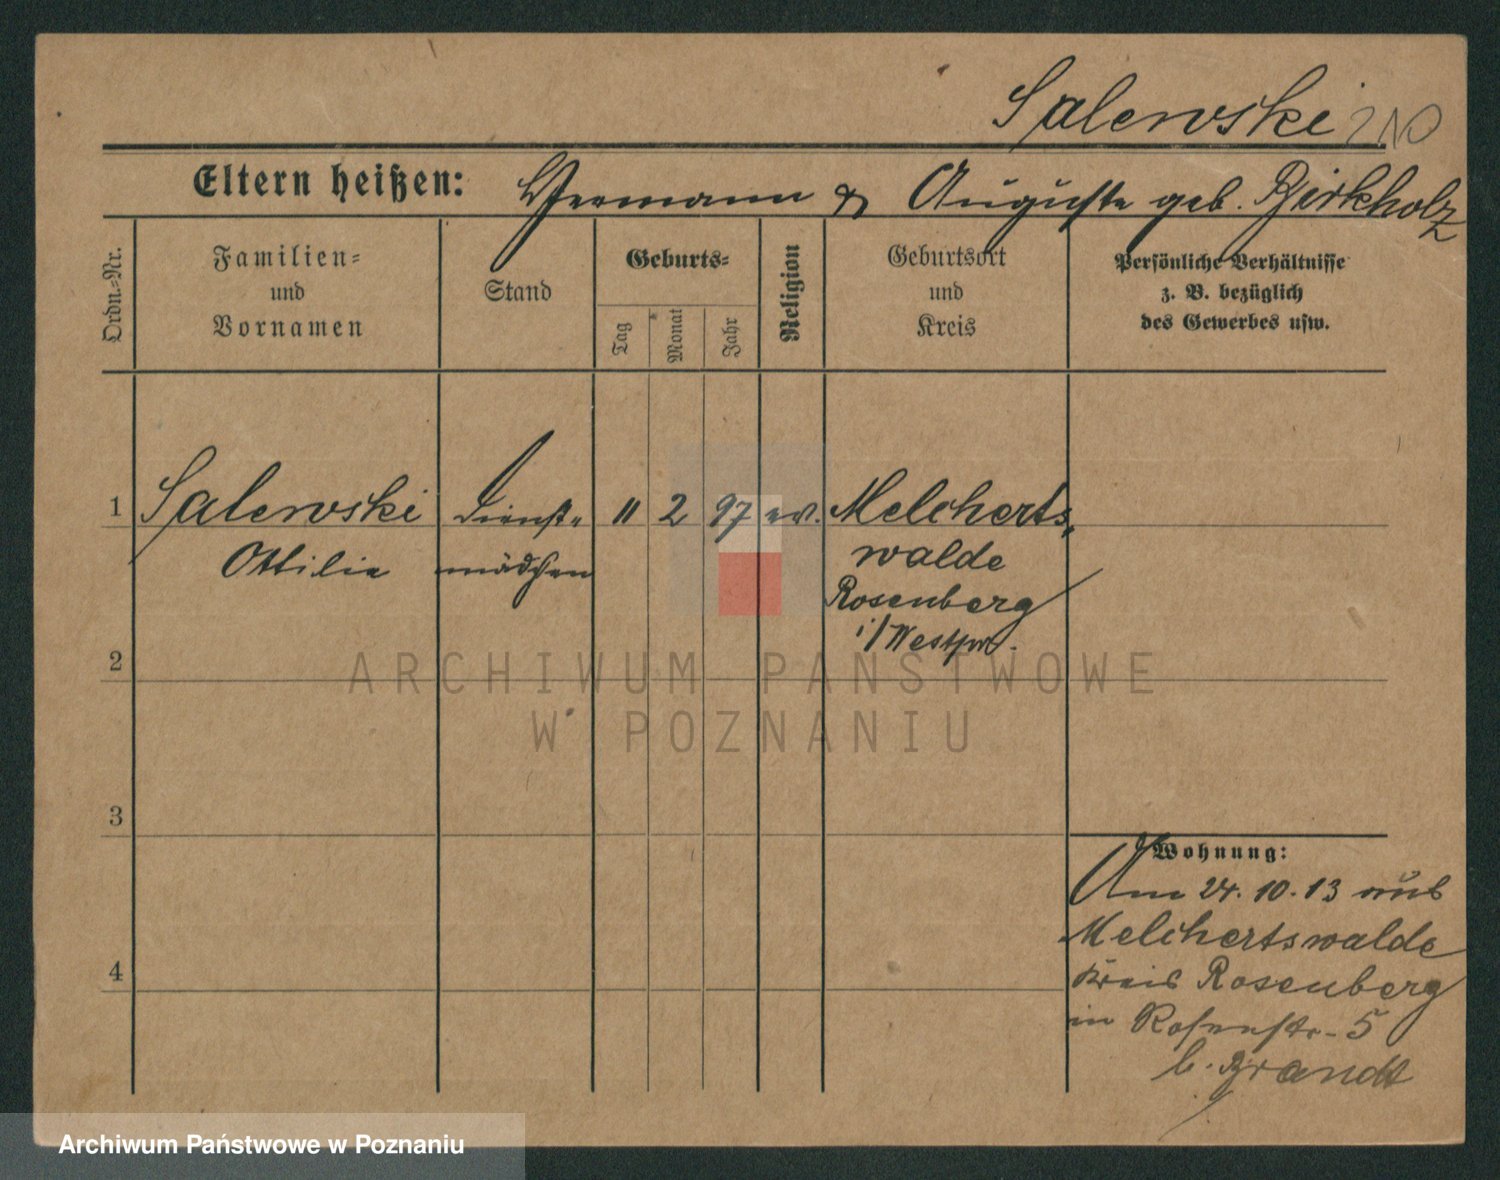 Salewski 210
Eltern heißen: Hermann & Auguste geb. Birkholz
Ordn.-Nr.
Familien-
und
Vornamen
Stand
Geburts-
Tag
Monat
Jahr
Religion
Geburtsort
und
Kreis
Persönliche Verhältnisse
z. B. bezüglich
des Gewerbes usw.
1 Salewski Dienst- 11 2 97 ev. Melcherts-
Ottilie mädchen walde
Rosenberg
i/Westpr.
2
ARCHIWUM PAŃSTWOWE
W POZNANIU
3
4
Wohnung:
Am 24.10.13 aus
Melchertswalde
Kreis Rosenberg
in Rosenstr. 5
b. Brandt
Archiwum Państwowe w Poznaniu